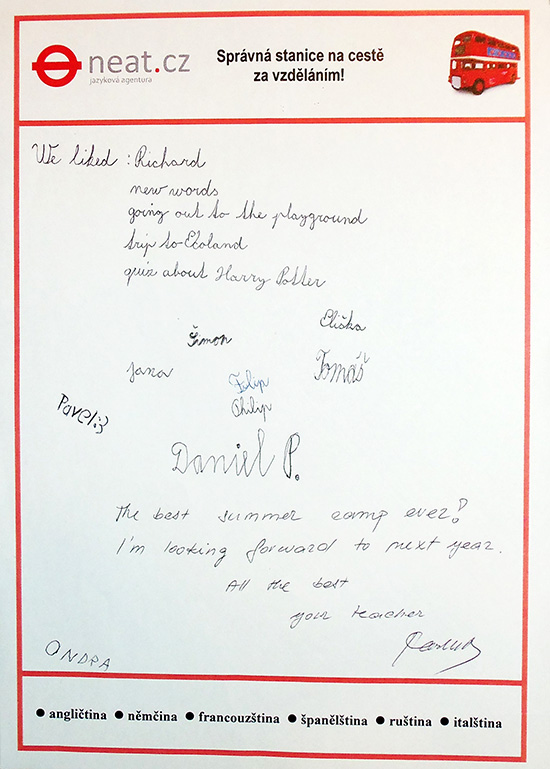 neat.cz
jazyková agentura
Správná stanice na cestě
za vzděláním!
We liked : Richard
new words
going out to the playground
trip to Ekoland
quiz about Harry Potter
Eliška
Šimon
Jana
Tomáš
Filip
Philip
Pavel :3
Daniel P.
The best summer camp ever!
I'm looking forward to next year.
All the best
your teacher
ONDRA
● angličtina ● němčina ● francouzština ● španělština ● ruština ● italština